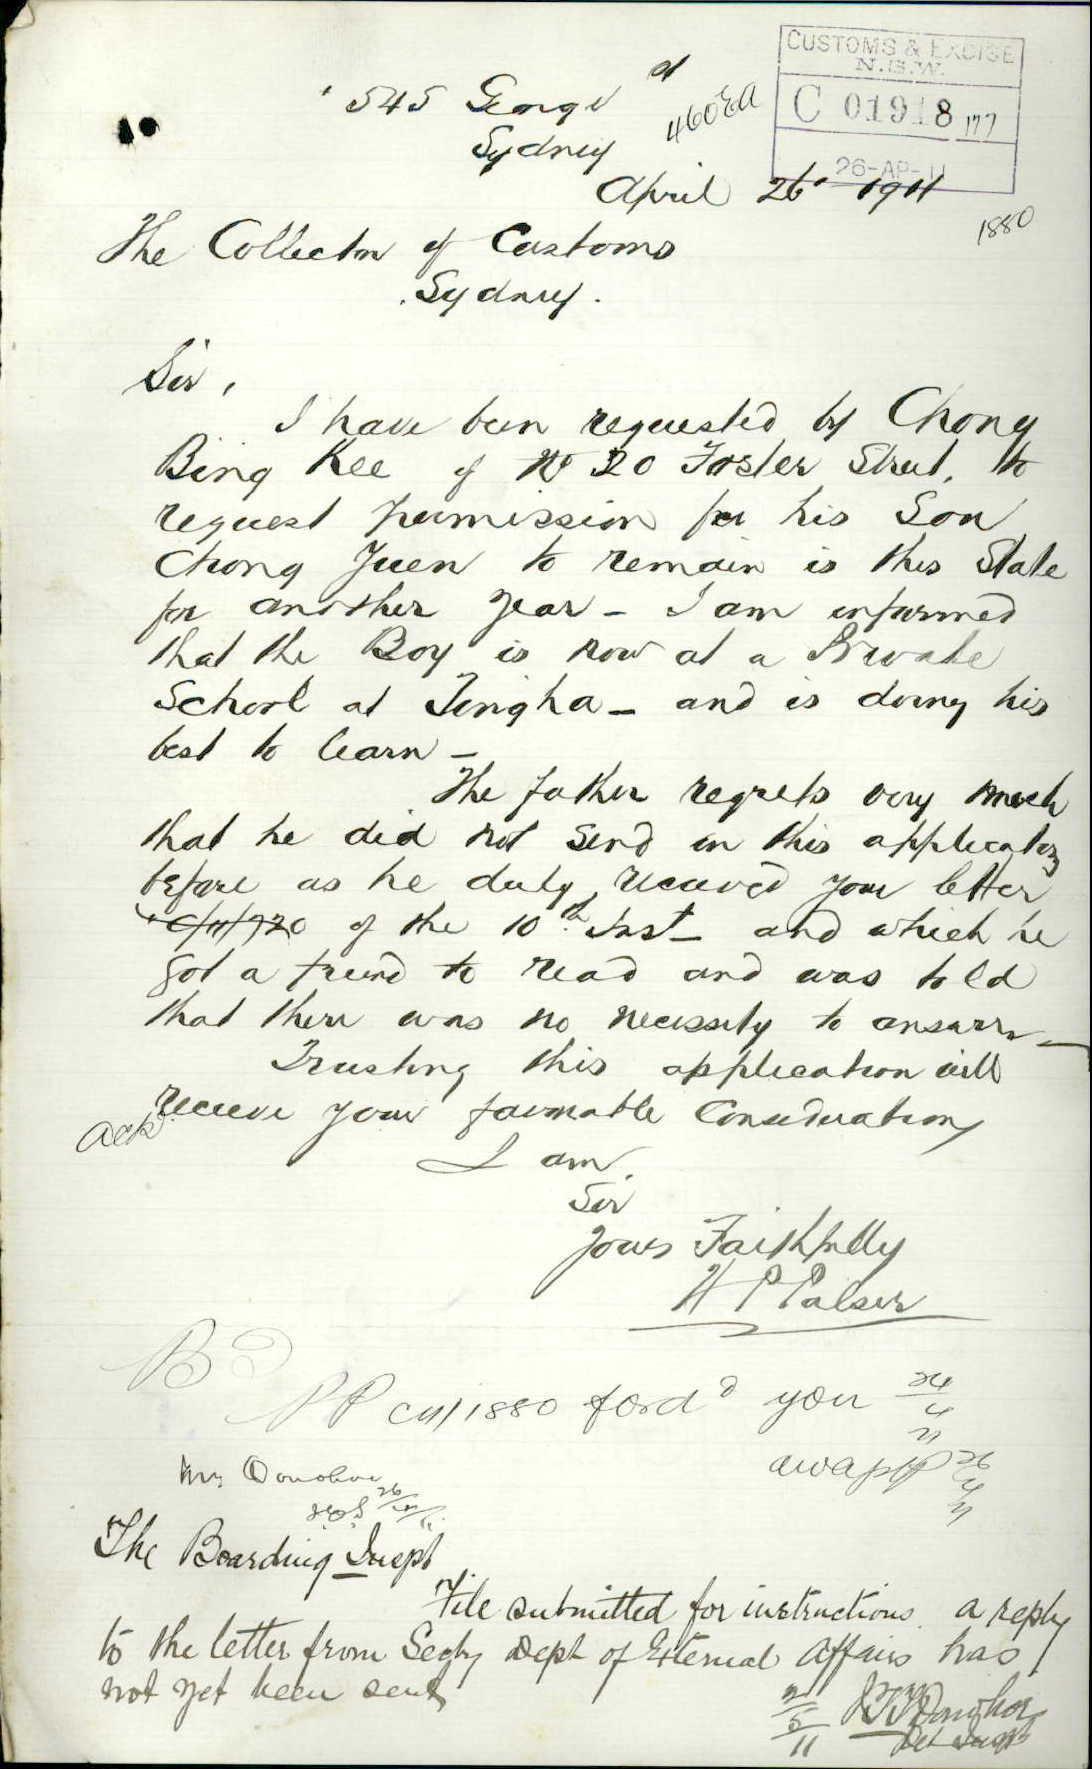 CUSTOMS & EXCISE
N.S.W.
C 01918 177
26-AP-11
545 George St
460 EA
Sydney
April 26 1911
1880
The Collector of Customs
Sydney.
Sir,
I have been requested by Chong
Bing Kee of No 20 Foster Street, to
request permission for his Son
Chong Juen to remain is this State
for another year - I am informed
that the Boy is now at a Private
School at Tingha - and is doing his
best to learn -
The father regrets very much
that he did not send in this application
before as he duly received your letter
of the 10th Inst - and which he
got a friend to read and was told
that there was no necessity to answer -
Trusting this application will
receive your favorable Consideration
Ack
I am
Sir
Yours Faithfully
H P Palser
PP C11/1880 ford you 24/4/11
26/4/11
Mr Donohoe
26/4/11
The Boarding Inspt
File submitted for instructions. a reply
to the letter from Secty Dept of External Affairs has
not yet been sent
2/5/11 Donohoe
Det Inspt